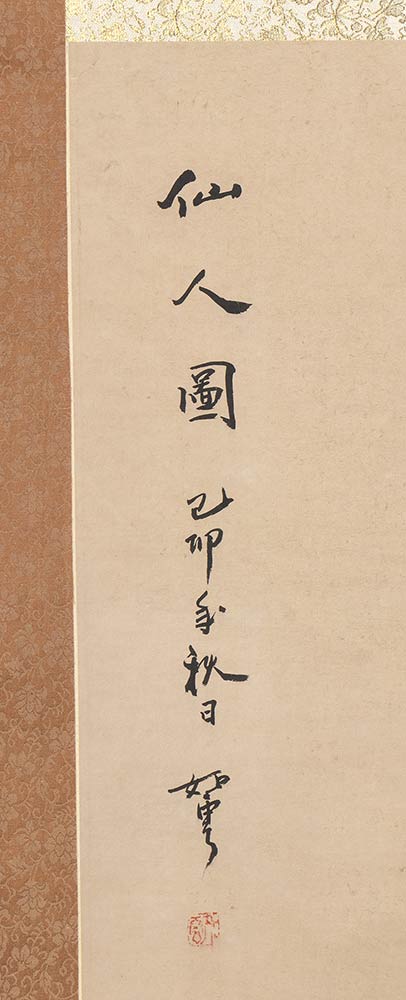 仙人圖 己卯年秋日